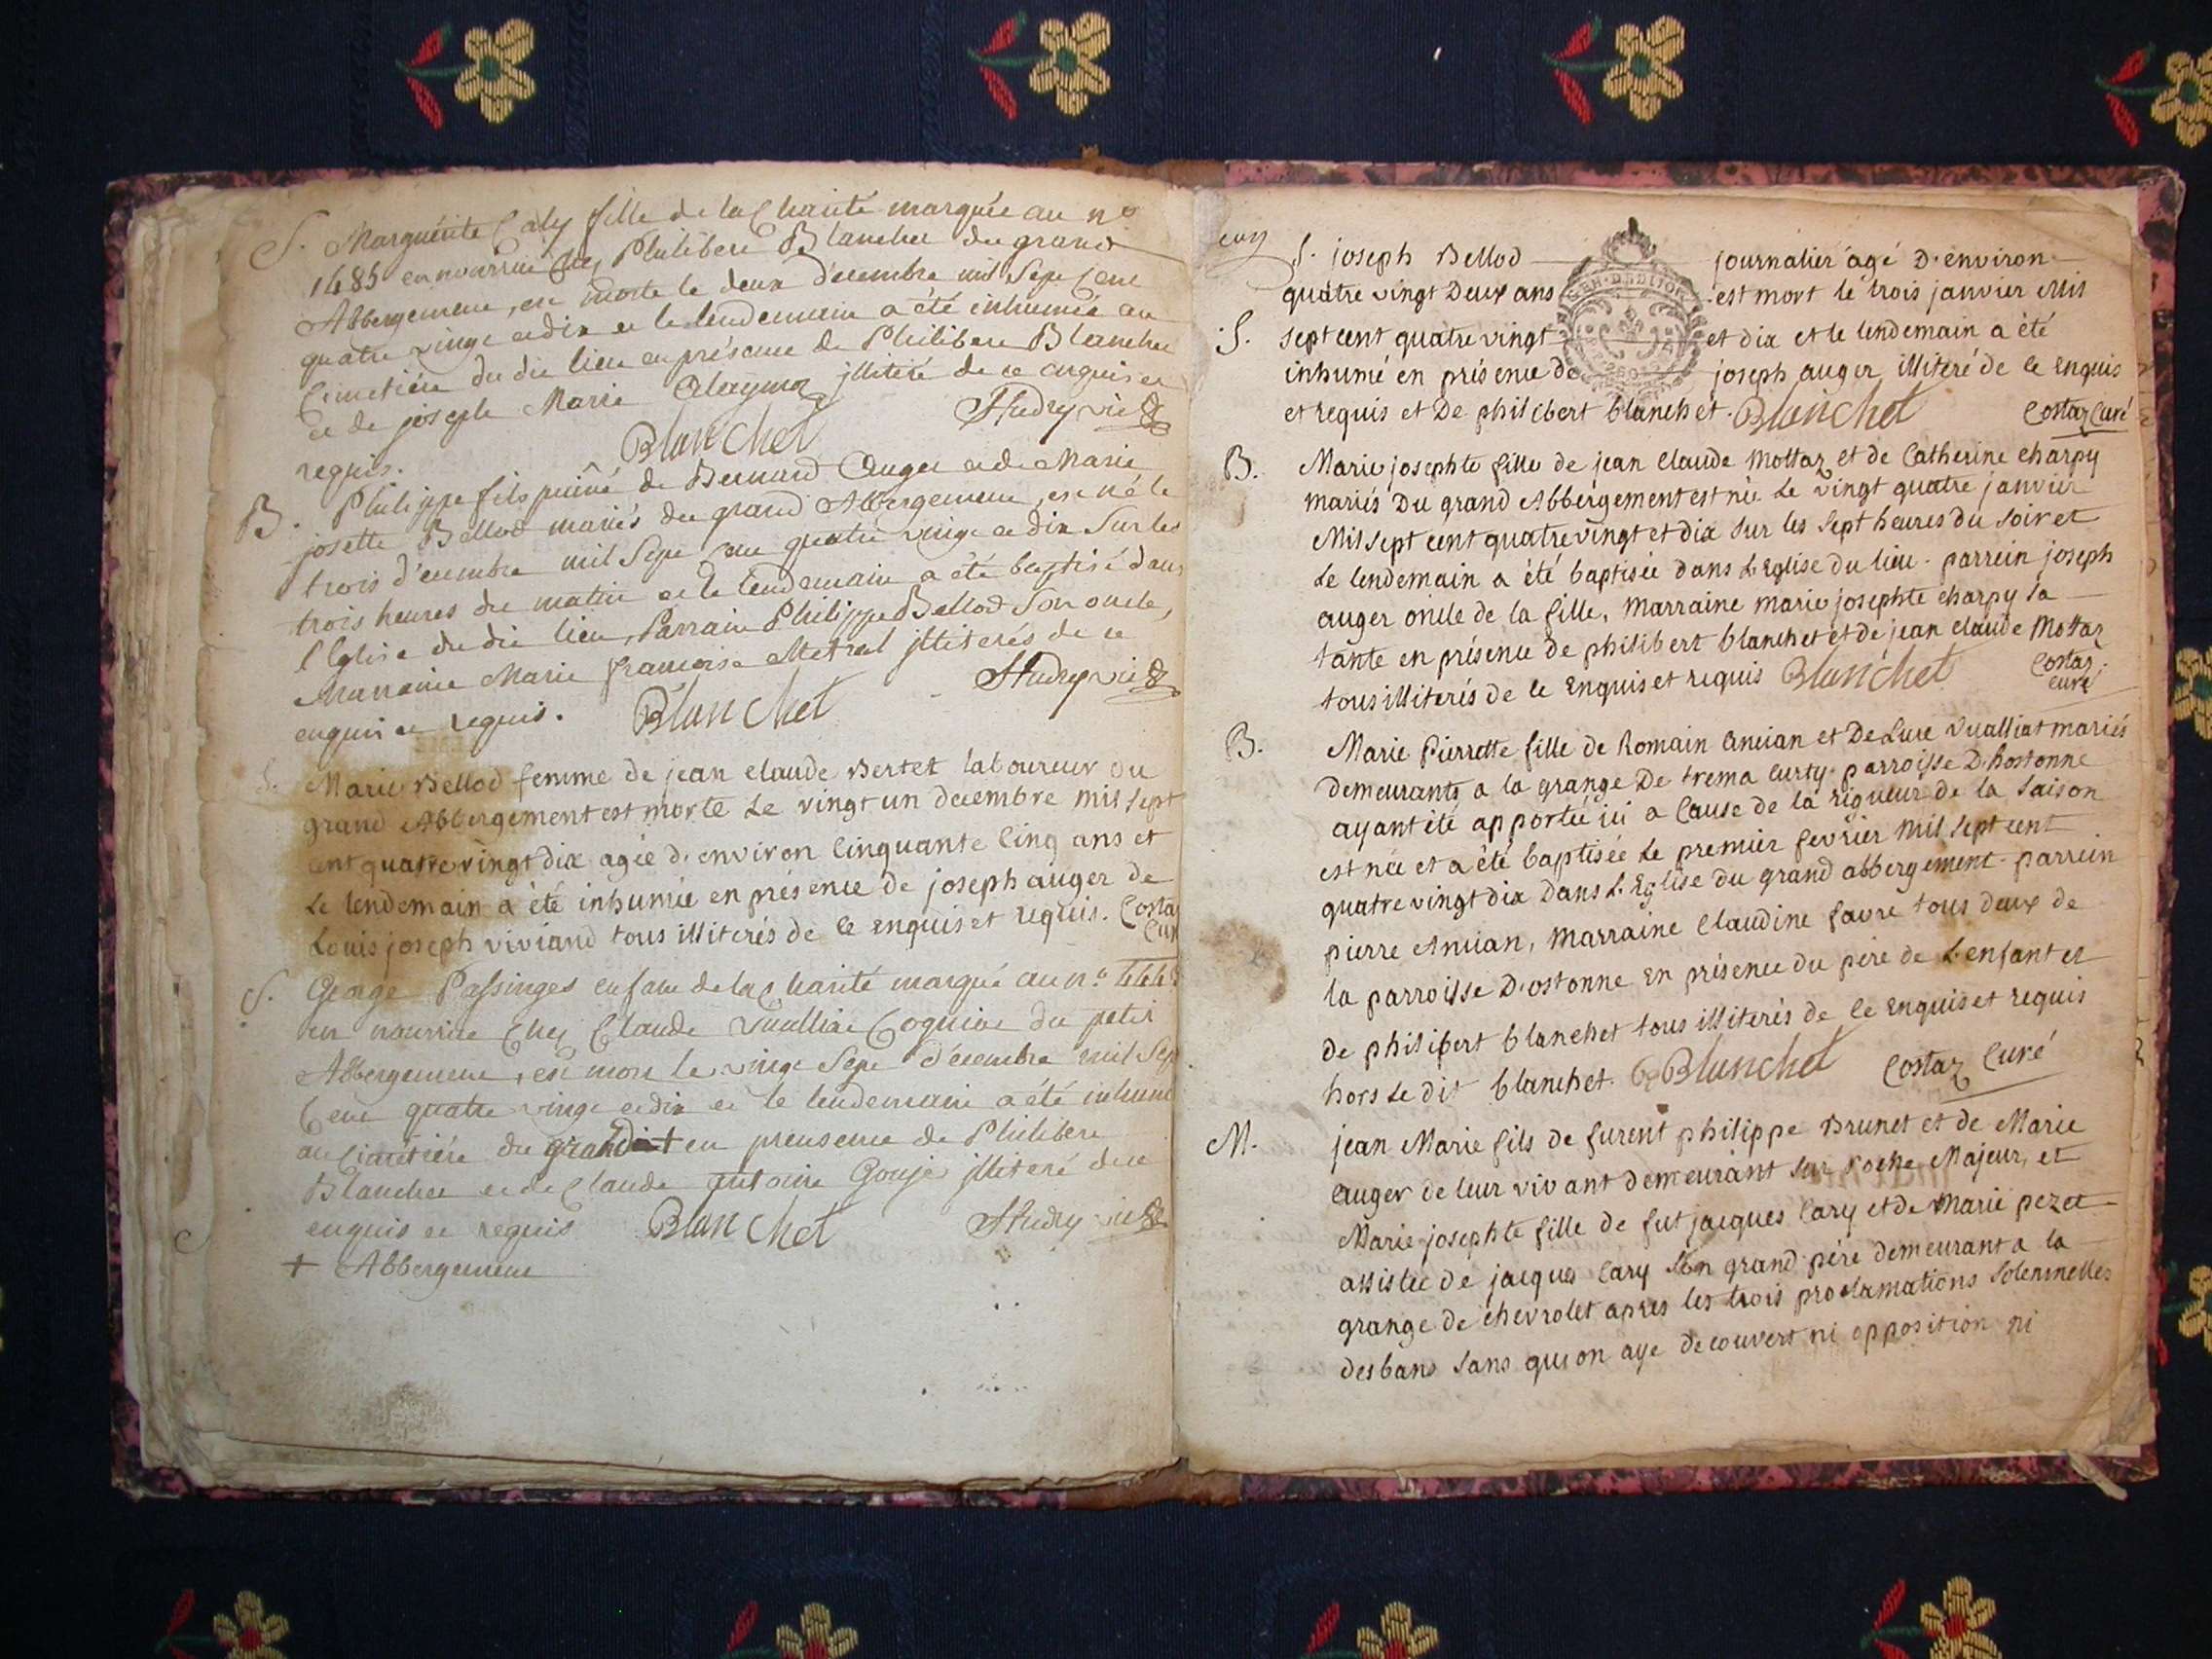 S. Marguerite Caly fille de la Charité marquée au n°
1485 en nourrice chez Philibert Blanchet du grand
Abbergement, est morte le deux décembre mil sept cent
quatre vingt et dix et le lendemain a été inhumée au
Cimetière du dit lieu en présence de Philibert Blanchet
et de joseph Marie illitéré de ce enquis et
requis. Blanchet
B. Philippe fils puîné de Bernard Auger et de Marie
josette Bellod mariés du grand Abbergement, est né le
trois décembre mil sept cent quatre vingt et dix sur les
trois heures du matin et le lendemain a été baptisé dans
l'Eglise du dit lieu, Parrain Philippe Bellod son oncle,
Marraine Marie françoise Metral illiterés de ce
enquis et requis. Blanchet
S. Marie Bellod femme de jean claude Bertet laboureur du
grand Abbergement est morte Le vingt un decembre mil sept
cent quatre vingt dix agée d'environ Cinquante Cinq ans et
Le lendemain a été inhumée en présence de joseph auger de
Louis joseph viviand tous illiterés de ce enquis et requis. Costaz
Curé
S. George Passinges enfant de la Charité marqué au n°
en nourrice chez Claude Vuilliat Cognin du petit
Abbergement, est mort le vingt sept décembre mil sept
Cent quatre vingt et dix et le lendemain a été inhumé
au Cimetière du grand + en presence de Philibert
Blanchet et de Claude antoine Goujet illiteré de ce
enquis et requis Blanchet
+ Abbergement
S. joseph Bellod journalier âgé D'environ
quatre vingt Deux ans est mort le trois janvier Mil
S. sept cent quatre vingt et dix et le lendemain a été
inhumé en présence de joseph auger illiteré de ce Enquis
et requis et De philibert blanchet. Blanchet Costaz Curé
B. Marie josephte fille de jean Claude Mottaz et de Catherine charpy
mariés Du grand Abbergement est née Le vingt quatre janvier
Mil sept cent quatre vingt et dix sur les Sept heures du soir et
Le lendemain a été baptisée dans L'Eglise du lieu. parrein joseph
auger oncle de la fille, Marraine Marie josephte charpy sa
tante en présence de philibert blanchet et de jean claude Mottaz
tous illiterés de ce Enquis et requis Blanchet Costaz
curé
B. Marie Pierrette fille de Romain Ancian et De Luce Vualliat mariés
demeurants a la grange De trema Curty parroisse D'hostonne
ayant été apportée ici a Cause de la rigueur de la saison
est née et a été baptisée Le premier fevrier Mil Sept cent
quatre vingt dix Dans L'Eglise du grand abbergement. parrein
pierre Ancian, Marraine Claudine favre tous deux de
la parroisse D'ostonne En présence du père de L'enfant et
de philibert blanchet tous illiterés de ce Enquis et requis
hors Le dit blanchet. Blanchet Costaz Curé
M. jean Marie fils de furent philippe Brunet et de Marie
auger de leur vivant demeurant sur Roche Majeur, et
Marie josephte fille de fut jacques Cary et de Marie pezet
assistée de jacques Cary son grand père demeurant a la
grange de chevrolet apres les trois proclamations solennelles
des bans sans qu'on aye decouvert ni opposition ni